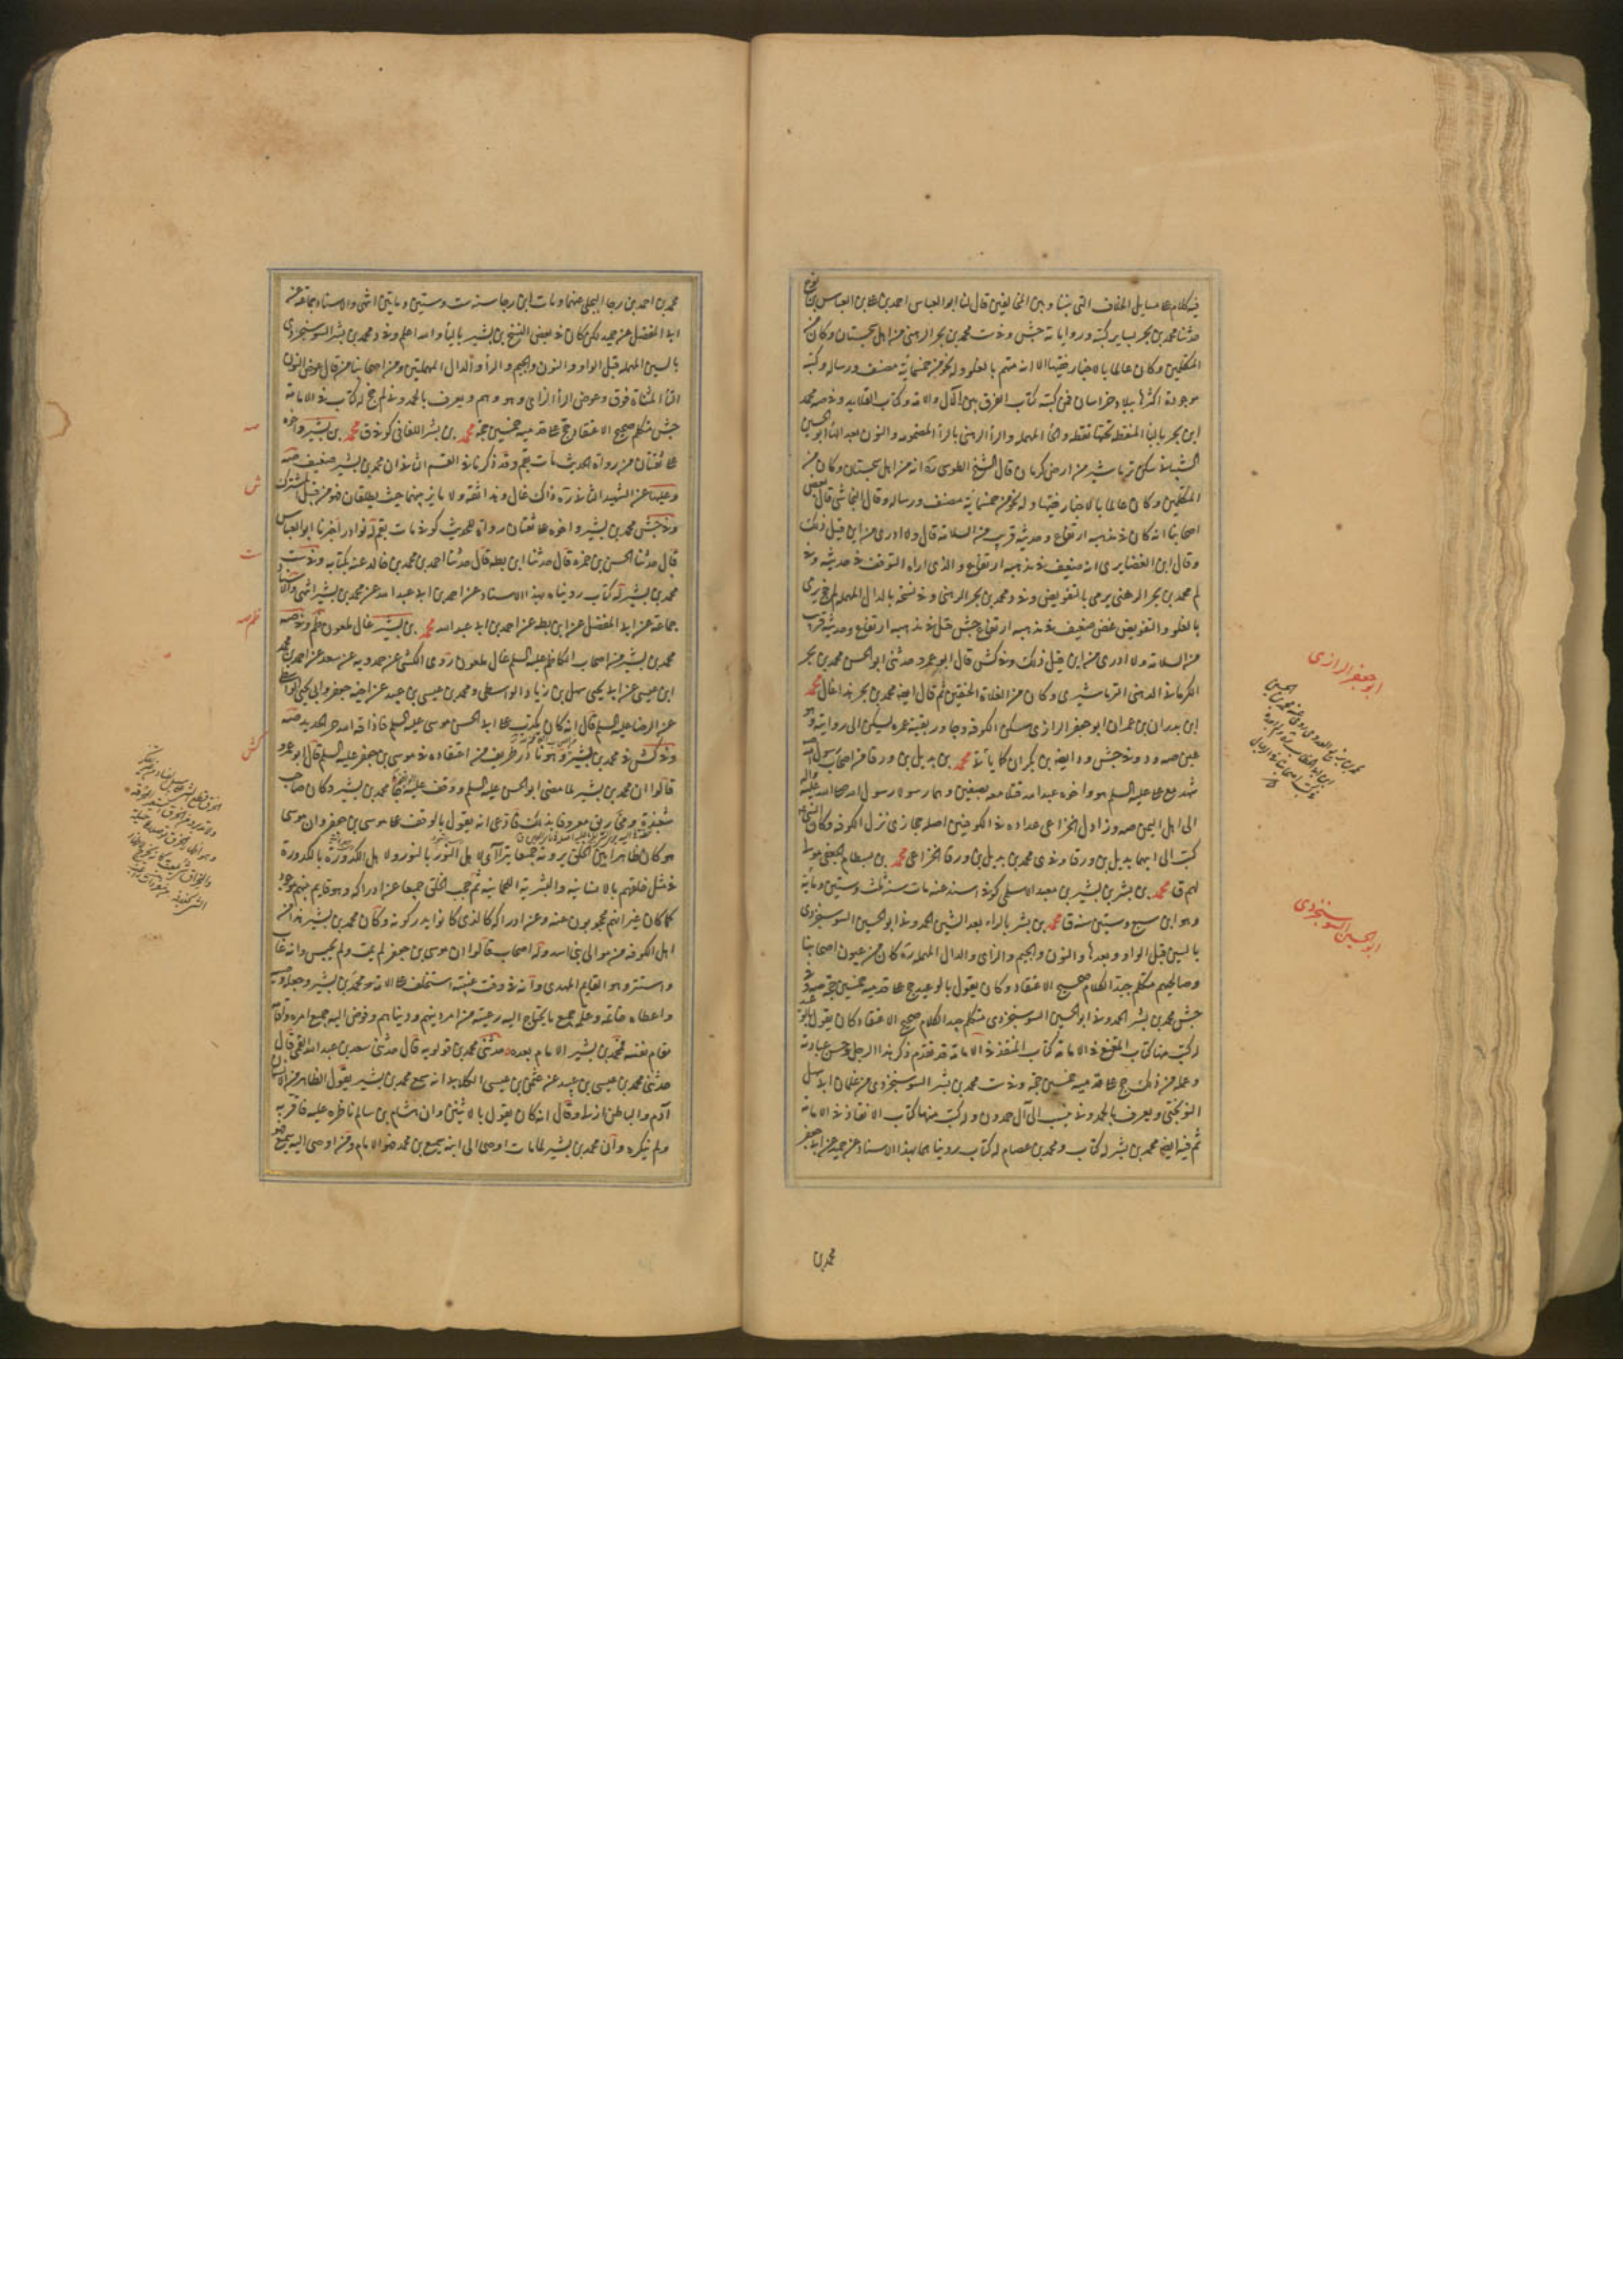 فيه كلام على مسايل الخلاف التي بيننا وبين المخالفين قال لنا ابو العباس احمد بن على بن العباس بن نوح
حدثنا محمد بن بحر بساير كتبه ورواياته جش وفي ست محمد بن بحر الرهني من اهل سجستان وكان من
المتكلمين وكان عالما بالاخبار فقيها الا انه متهم بالغلو وله نحو من خمسمأية مصنف ورسالة وكتبه
موجودة اكثرها ببلاد خراسان فمن كتبه كتاب الفرق بين الآل والامة وكتاب القلايد وفي صه محمد
ابن بحر بالباء المنقطة تحتها نقطة والحاء المهملة والراء الرهني بالراء المضمومة والنون بعد الهاء ابو الحسين
الشيباني سكن نرماشير من ارض كرمان قال الشيخ الطوسي ره انه من اهل سجستان وكان من
المتكلمين وكان عالما بالاخبار فقيها وله نحو من خمسمأية مصنف ورسالة وقال النجاشي قال بعض
اصحابنا انه كان في مذهبه ارتفاع وحديثه قريب من السلامة قال ولا ادري من اين قيل ذلك
وقال ابن الغضايري انه ضعيف في مذهبه ارتفاع والذي اراه التوقف في حديثه وفي
لم محمد بن بحر الرهني يرمى بالتفويض وفي د محمد بن بحر الرهني وفي نسخة بالدال المهملة لم جخ رمي
بالغلو والتفويض غض ضعيف في مذهبه ارتفاع جش قيل في مذهبه ارتفاع وحديثه قريب
من السلامة ولا ادري من اين قيل ذلك وفي كش قال ابو عمرو حدثني ابو الحسن محمد بن بحر
الكرماني الدهني النرماشيري وكان من الغلاة الحنقين ثم قال ايضه محمد بن بحر هذا غال محمد
ابن بدران بن عمران ابو جعفر الرازي سكن الكوفة وجاور بقية عمره يسكن الى روايته وهو
عين صه ود وفي جش ود ايضه بن بكران كما يأتي محمد بن بديل بن ورقا من اصحاب رسول الله
شهد مع على عليه السلم هو واخوه عبد الله قتلا معه بصفين وهما رسولا رسول الله صلى الله عليه واله
الى اهل اليمن صه وزاد ل الخزاعي عداده في الكوفيين اصله حجازي نزل الكوفة وكان النبي
كتب الى ابيهما بديل بن ورقا وفي ى محمد بن بديل بن ورقا الخزاعي محمد بن بسطام الجعفي مولا
لهم ق محمد بن بشر بن بشير بن معبد الاسلمي كوفي اسند عنه مات سنة ثلث وستين ومأية
وهو ابن سبع وستين سنة ق محمد بن بشر بالراء بعد الشين الحمدوني ابو الحسين السوسنجردي
بالسين قبل الواو وبعدها والنون والجيم والراء والدال المهملة ره كان من عيون اصحابنا
وصالحيهم متكلم جيد الكلام صحيح الاعتقاد وكان يقول بالوعيد حج على قدميه خمسين حجة صه وفي
جش محمد بن بشر الحمدوني ابو الحسين السوسنجردي متكلم جيد الكلام صحيح الاعتقاد كان يقول بالوعيد
له كتب منها كتاب المقنع في الامامة كتاب المنقذ في الامامة قد تقدم ذكر هذا الرجل وحسن عبادته
وعمله من ذلك حج على قدميه خمسين حجة وفي ست محمد بن بشر السوسنجردي من غلمان ابي سهل
النوبختي ويعرف بالحمدوني ينسب الى آل حمدون وله كتب منها كتاب الانقاذ في الامامة
ثم فيه ايضه محمد بن بشر له كتاب ومحمد بن عصام له كتاب رويناهما بهذا الاسناد عن حميد عن ابي جعفر
محمد بن
ابو جعفر الرازي
ابو الحسين السوسنجردي
محمد بن احمد بن رجا البجلي عنهما ومات ابن رجا سنة ست وستين ومايتين انتهى والاسناد جماعة عن
ابي المفضل عن حميد ولكن كان في بعض النسخ بن بشير بالياء والله اعلم وفي د محمد بن بشر السوسنجردي
بالسين المهملة قبل الواو والنون والجيم والراء والدال المهملتين ومن اصحابنا من قال عوض النون
التاء المثناة فوق وعوض الراء الزاي وهو وهم ويعرف بالحمدوني لم جخ له كتاب في الامامة
جش متكلم صحيح الاعتقاد حج على قدميه خمسين حجة محمد بن بشر اللفافي كوفي ق محمد بن بشير واخوه
على ثقتان من رواة الحديث مات بقم وقد ذكرنا في القسم الثاني ان محمد بن بشير ضعيف صه
وعليها عن الشهيد الثاني ره ذاك غال وهذا ثقة ولا مايز بينهما حيث يطلقان فهو من قبيل المشترك
وفي جش محمد بن بشير واخوه على ثقتان رواة للحديث كوفي مات بقم له نوادر اخبرنا ابو العباس
قال حدثنا الحسن بن حمزه قال حدثنا ابن بطه قال حدثنا احمد بن محمد بن خالد عنه بكتابه وفي ست
محمد بن بشير له كتاب رويناه بهذا الاسناد عن احمد بن ابي عبد الله عن محمد بن بشير انتهى والاسناد
جماعة عن ابي المفضل عن ابن بطة عن احمد بن ابي عبد الله محمد بن بشير غال ملعون ظم وفي صه
محمد بن بشير من اصحاب الكاظم عليه السلم غال ملعون روى الكشي عن حمدويه عن سعد عن احمد بن محمد
ابن عيسى عن ابي يحيى سهل بن زياد الواسطي ومحمد بن عيسى بن عبيد عن اخيه جعفر وابي يحيى الواسطي
عن الرضا عليه السلم قال انه كان يكذب على ابي الحسن موسى عليه السلم فاذاقه الله حر الحديد صه
وفي كش في محمد بن بشير وهو نادر طريف من اعتقاده في موسى بن جعفر عليه السلم قال ابو عمرو
قالوا ان محمد بن بشير لما مضى ابو الحسن عليه السلم ووقف عليه الواقفة محمد بن بشير وكان صاحب
شعبذة ومخاريق معروفا بذلك فادعى انه يقول بالوقف على موسى بن جعفر وان موسى
هو كان ظاهرا بين الخلق يرونه جميعا يتراأى لاهل النور بالنور ولاهل الكدورة بالكدورة
في مثل خلقهم بالانسانية والبشرية اللحمانية ثم حجب الخلق جميعا عن ادراكه وهو قايم بينهم موجود
كما كان غير انهم محجوبون عنه وعن ادراكه كالذي كانوا يدركونه وكان محمد بن بشير هذا من
اهل الكوفة من موالي بني اسد وله اصحاب قالوا ان موسى بن جعفر لم يمت ولم يحبس وانه غاب
واستتر وهو القايم المهدي وانه في وقت غيبته استخلف على الامة محمد بن بشير وجعله وصيه
واعطاه خاتمه وعلمه جميع ما يحتاج اليه رعيته من امر دينهم ودنياهم وفوض اليه جميع امره واقامه
مقام نفسه فمحمد بن بشير الامام بعده حدثني محمد بن قولويه قال حدثني سعد بن عبد الله القمي قال
حدثني محمد بن عيسى بن عبيد عن عثمان بن عيسى الكلابي انه سمع محمد بن بشير يقول الظاهر من الانسان
آدم والباطن ازلي وقال انه كان يقول بالاثنين وان هشام بن سالم ناظره عليه فاقر به
ولم ينكره وان محمد بن بشير لما مات اوصى الى ابنه سميع بن محمد فهو الامام ومن اوصى اليه سميع فهو
صه
ش
ست
ظم صه
كش